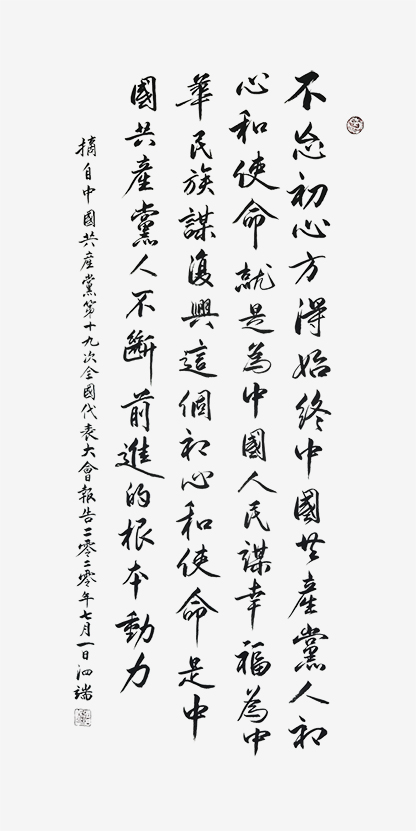 不忘初心方得始終中國共產黨人初
心和使命就是為中國人民謀幸福為中
華民族謀復興這個初心和使命是中
國共產黨人不斷前進的根本動力
摘自中國共產黨第十九次全國代表大會報告二零二零年七月一日泗端